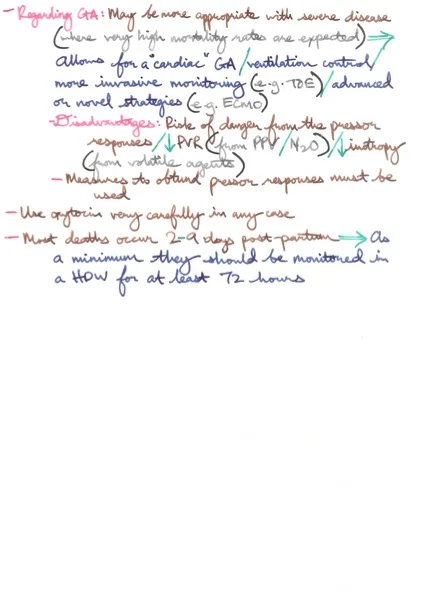 – Regarding GA: May be more appropriate with severe disease
(where very high mortality rates are expected) ⇒
Allows for a "cardiac" GA / ventilation control /
more invasive monitoring (e.g. TOE) / advanced
or novel strategies (e.g. ECMO)
– Disadvantages: Risk of danger from the pressor
responses / ↓ PVR (from PPV / N2O) / ↓ inotropy
(from volatile agents)
– Measures to obtund pressor responses must be
used
– Use oxytocin very carefully in any case
– Most deaths occur 2-9 days post-partum ⇒ As
a minimum they should be monitored in
a HDW for at least 72 hours